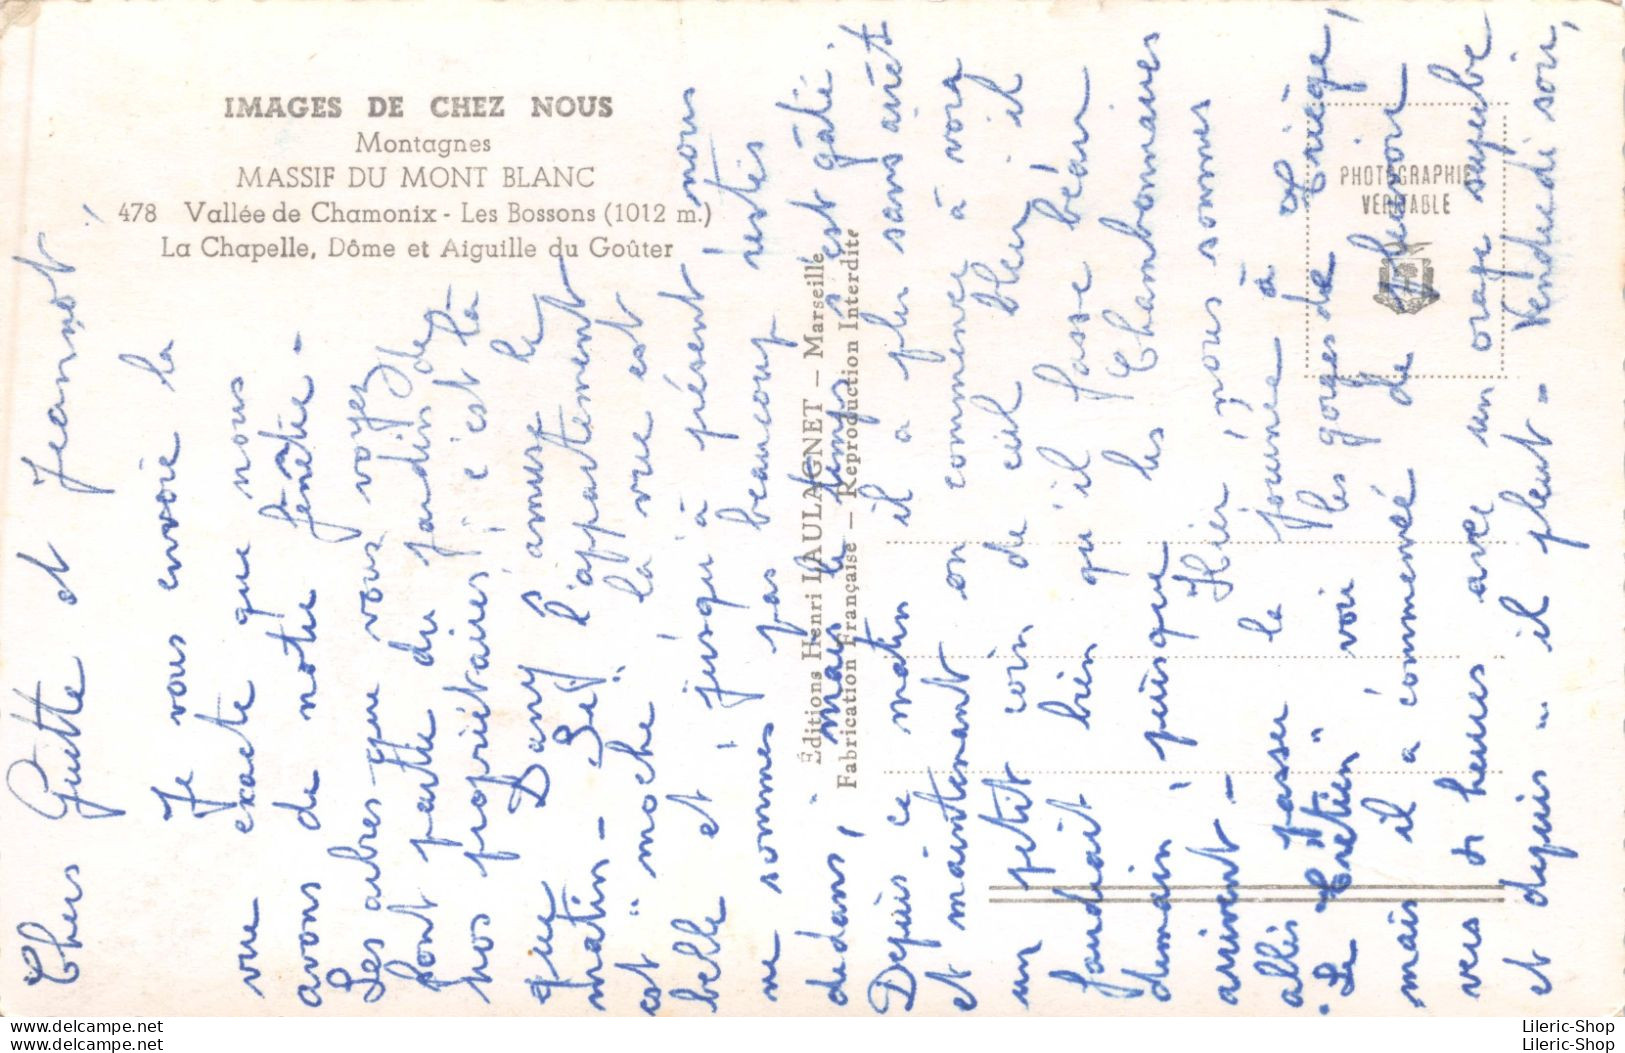 IMAGES DE CHEZ NOUS
Montagnes
MASSIF DU MONT BLANC
478 Vallée de Chamonix - Les Bossons (1012 m.)
La Chapelle, Dôme et Aiguille du Goûter
Éditions Henri LAULAGNET — Marseille
Fabrication Française — Reproduction Interdite
PHOTOGRAPHIE
VÉRITABLE
Chers Guitte et Jeannot!
Je vous envoie la
vue exacte que nous
avons de notre fenêtre -
Les arbres que vous voyez
font partie du jardin de
nos propriétaires, c'est là
que Dany s'amuse le
matin - Si l'appartement
est "moche" la vue est
belle et jusqu'à présent, nous
ne sommes pas beaucoup restés
dedans, mais le temps s'est gâté,
Depuis ce matin il a plu sans arrêt
et maintenant on commence à voir
un petit coin de ciel bleu, il
faudrait bien qu'il fasse beau
demain, puisque les Chambonnaires
arrivent - Hier, nous sommes
allés passer la journée à
"Le Crétien" voir les gorges de
mais il a commencé de pleuvoir
vers 5 heures avec un orage superbe
et depuis... il pleut - Vendredi soir,